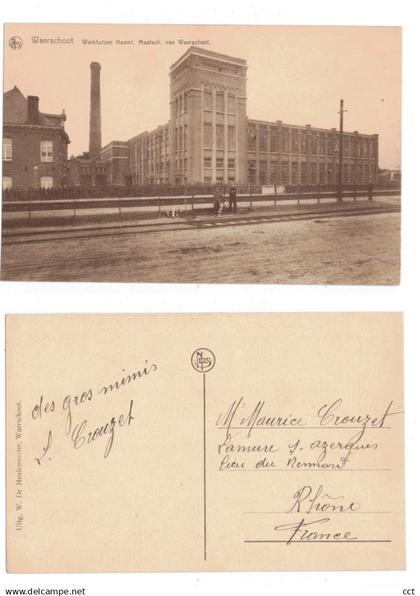 Waerschoot
Werkhuizen Naaml. Maatsch. van Waerschoot.
des gros mimis
L. Crouzet
Uitg. W. De Meulemeester, Waerschoot.
NELS
Mr Maurice Crouzet
Lamure s. azergues
lieu du
Rhône
France
cct